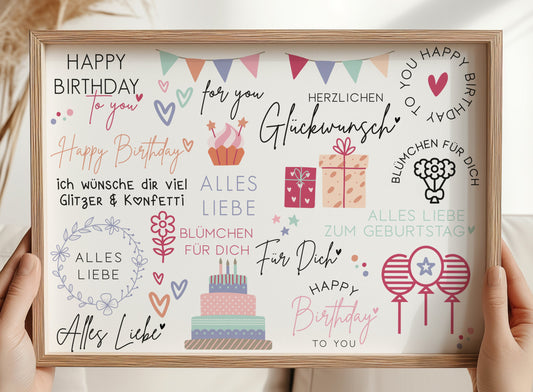 HAPPY
BIRTHDAY
to you
for you
HERZLICHEN
Glückwunsch
TO YOU HAPPY BIRTHDAY
Happy Birthday
BLÜMCHEN FÜR DICH
ich wünsche dir viel
Glitzer & Konfetti
ALLES
LIEBE
ALLES LIEBE
ZUM GEBURTSTAG
BLÜMCHEN
FÜR DICH
ALLES
LIEBE
Für Dich
HAPPY
Birthday
TO YOU
Alles Liebe